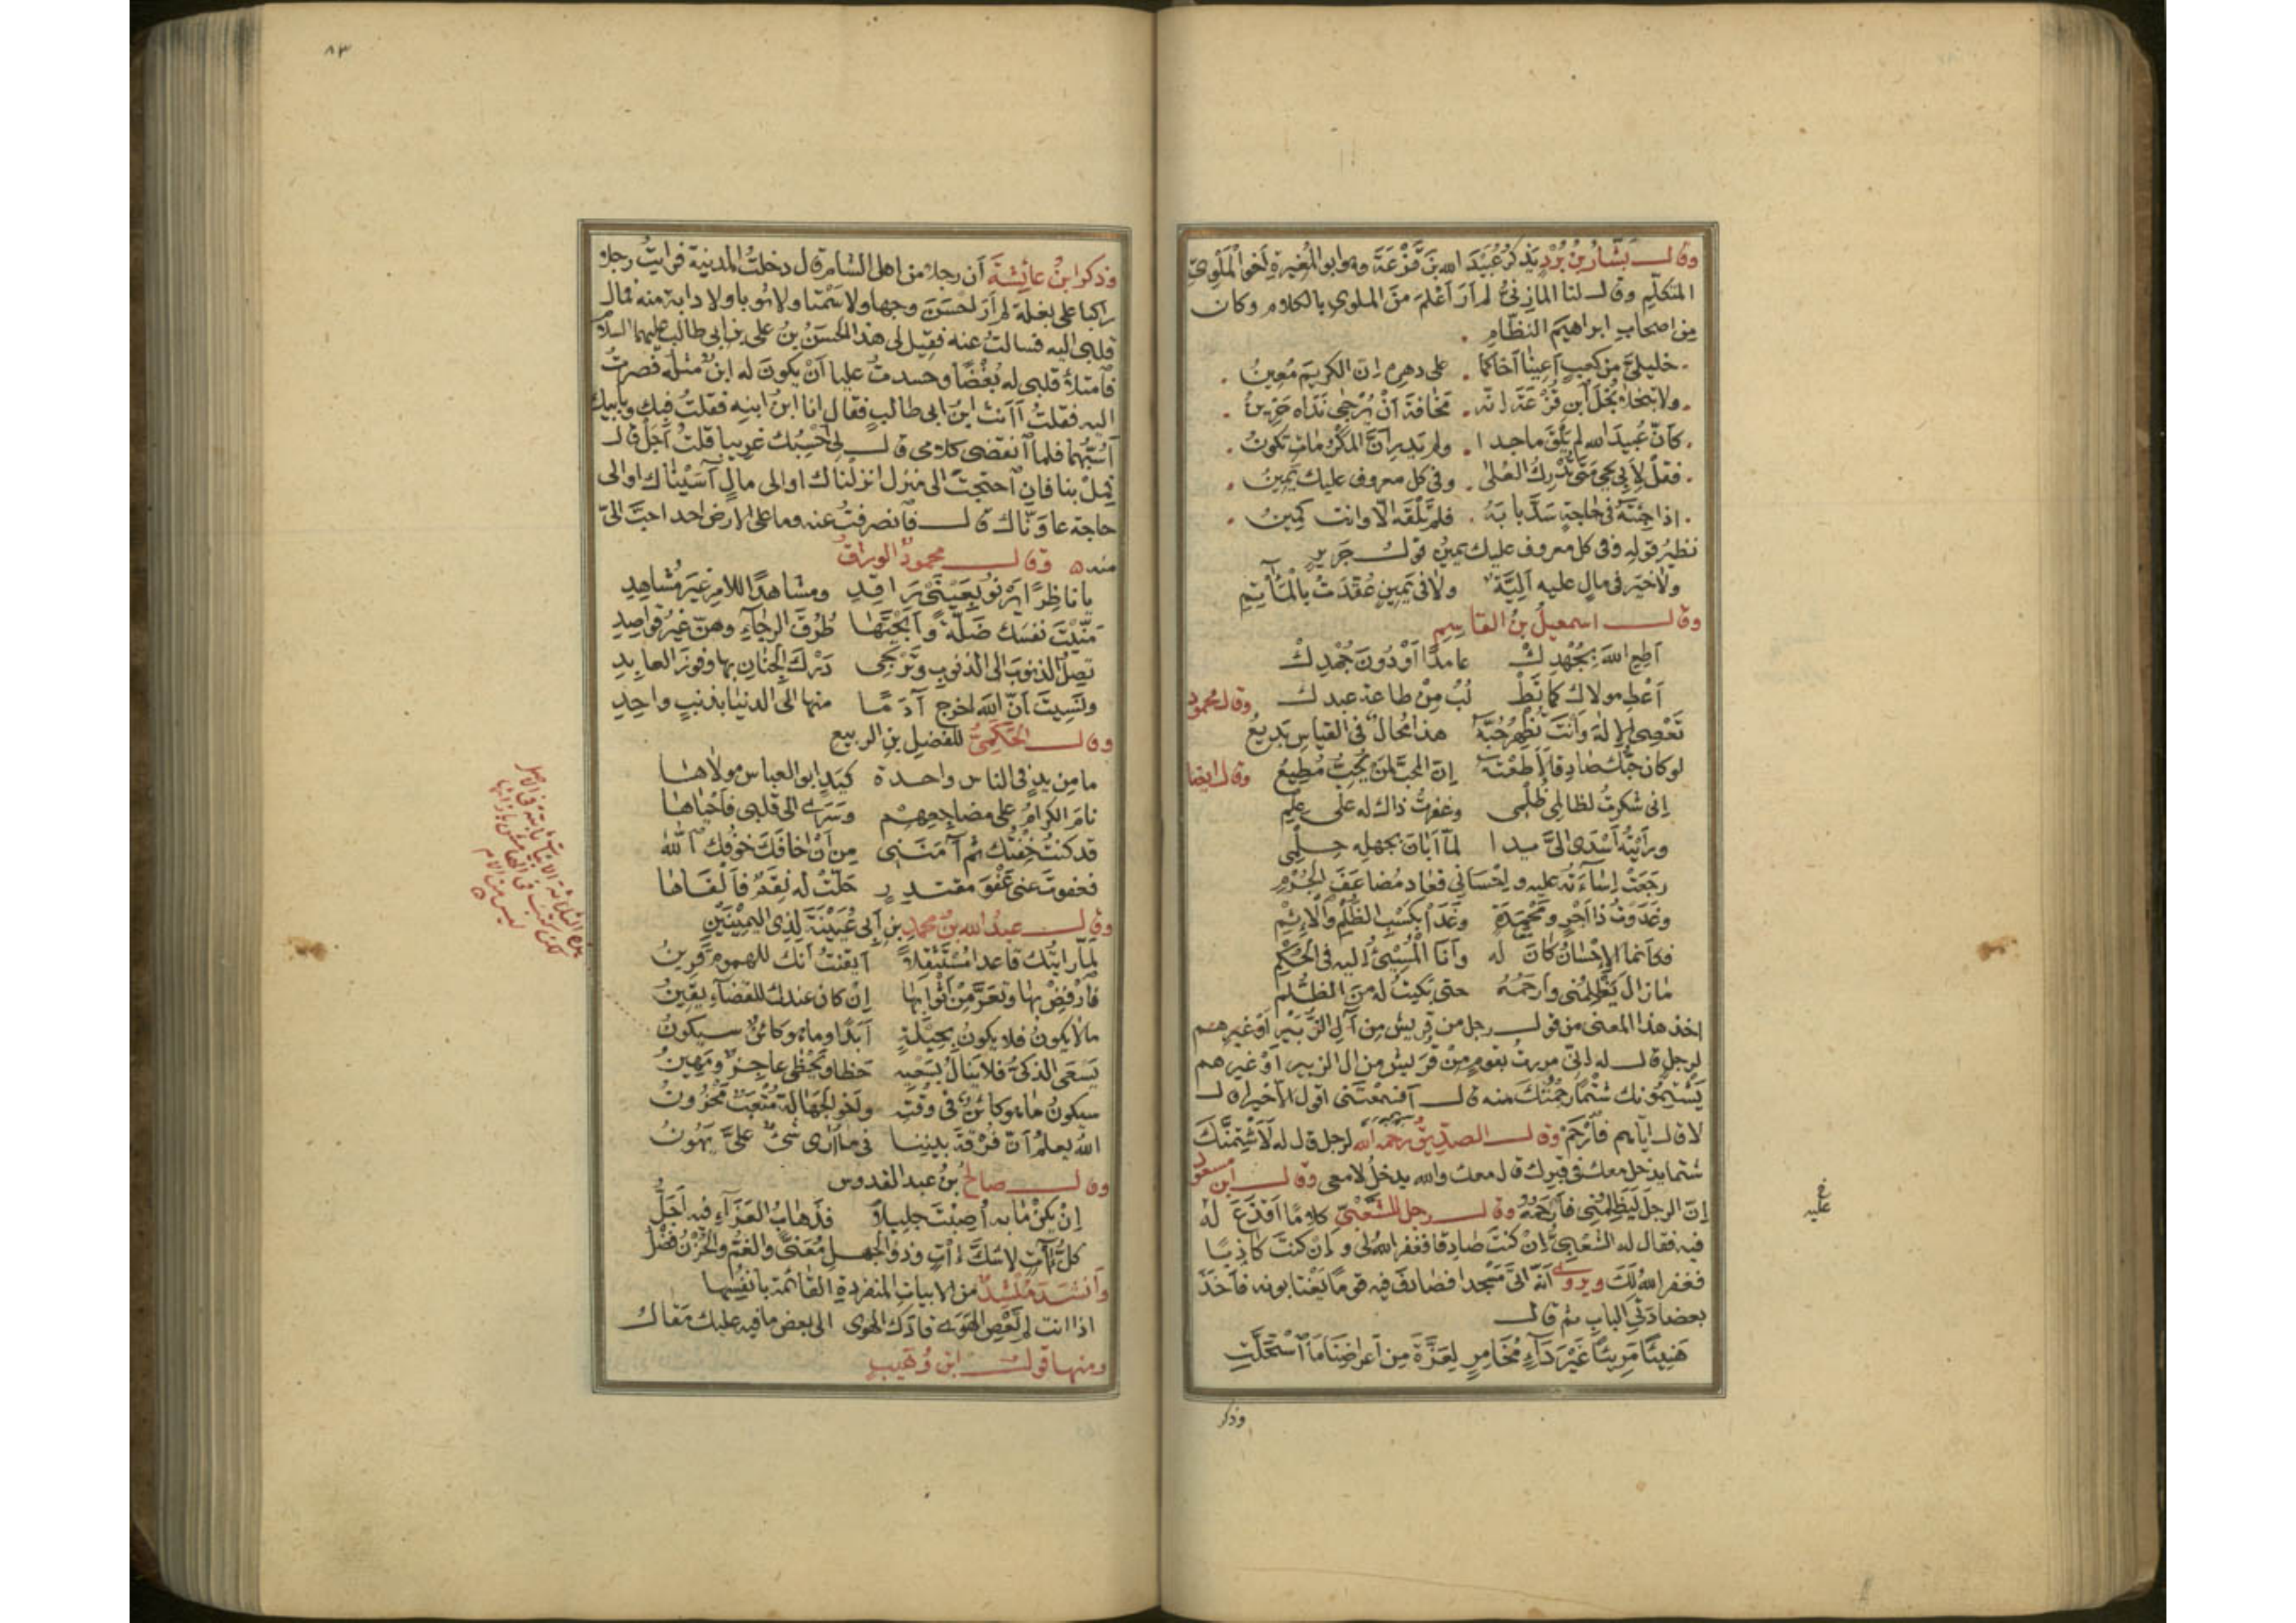 وقال بَشَّارُ بنُ بُرْدٍ يذكر عُبَيْدَ الله بنَ قَزْعَةَ وهو ابو المُغيرةِ اخو المَلَوِيّ
المتكلّم وقال لنا المازنيّ لم اَرَ اَعْلمَ منَ الملوي بالكلام وكان
من اصحاب ابراهيمَ النظّامِ
خليليَّ من كعبٍ اَعِينا اَخاكما على دهرهِ ان الكريمَ مُعينُ
ولا تبخلا بُخْلَ ابنِ قَزْعَةَ انّه مَخافةَ اَنْ يُرْجى نَداه حَزينُ
كاَنّ عُبيدَ الله لم يَلْقَ ماجدا ولم يَدرِ اَنّ المَكْرُماتِ تكونُ
فقلْ لاَبي يحيى مَتى تُدْرِكُ العُلى وفي كل معروف عليك يَمينُ
اذا جِئْتَهُ في حاجةٍ سَدَّ بابَهُ فلم تَلْقَهُ الّا وانت كَمينُ
نظيرُ قولهِ وفي كل معروف عليك يمينُ قولُ جَريرٍ
ولا خيرَ في مالٍ عليه اَلِيَّةٌ ولا في يَمينٍ عُقِدَتْ بالْمَآثِمِ
وقال اسمعيلُ بنُ القاسِمِ
اَطِعِ اللهَ بِجُهْدِكْ عامدًا اَوْ دُونَ جُهْدِكْ
اَعْطِ مولاك كما تَطْ لُبُ مِنْ طاعة عبدك وقال محمود
تَعْصِي الاِلهَ وَاَنتَ تُظْهِرُ حُبَّهُ هذا مُحالٌ في القياسِ بَديعُ
لو كان حُبُّك صادقا لَاَطَعْتَهُ اِنّ المحبَّ لمَنْ يُحِبُّ مُطيعُ وقال ايضا
اِنى شكرتُ لظالِمي ظُلْمي وغفرتُ ذاك له على عِلْمِ
ورَاَيْتُه اَسْدَى اِلَيَّ يدا لمّا اَبانَ بجهلِه حِلْمِي
رجَعَتْ اِساءَتُه عليه واِحْسانى فعاد مُضاعَفَ الجُرْمِ
وغَدَوْتُ ذا اَجْرٍ ومَحْمِدَةٍ وغَدَا بكَسْبِ الظُّلْمِ وَالْاِثْمِ
فكاَنما الاِحْسانُ كانَ لَه وَاَنا المُسِيْءُ اليه في الحُكْمِ
مازال يَظْلِمُنى وَاَرْحَمُهُ حتى بَكيتُ له مِنَ الظُّلْمِ
اخذ هذا المعنى من قول رجل من قريش مِن آلِ الزُّبَيْرِ اَوْ غيرِهم
لرجل قال له اِنّي مررتُ بقومٍ مِنْ قُرَيْشٍ من ال الزبير اَوْ غيرهم
يَشْتِمُونك شَتْمًا رَحِمْتُكَ منه قال اَفَسَمِعْتَني اقول الّا خيرا قال
لا قال اِيّاهم فَارْحَمْ وقال الصدّيقُ رَحِمَه الله لرجل قال له لَاَشْتِمَنَّكَ
شتما يدخل معك في قبرك قال معك والله يدخلُ لا معى وقال ابن مسعود
اِنّ الرجلَ لَيَظْلِمُنِى فاَرْحَمُهُ وقال رجل للشَّعْبِيّ كلامًا اَقْذَعَ لَهُ
فيه فقال له الشَعْبِيُّ اِنْ كنتَ صادقا فغفر اللهُ لي واِنْ كنتَ كاذِبًا
فغفر اللهُ لَكَ ويروى اَنّهُ اتىَ مَسْجدا فصادَفَ فيه قومًا يَغْتابونه فاَخَذَ
بعضادَتَيِ البابِ ثم قال
هَنِيئًا مَرِيئًا غَيْرَ دَآءٍ مُخَامِرٍ لِعَزَّةَ مِن اَعْراضِنا مَا اسْتَحَلَّتِ
وذكر
عليه
٨٣
وذكر ابنُ عائشةَ اَن رجلا من اهل الشام قال دخلتُ المدينةَ فرايتُ رجلا
راكبا على بغلة لم اَرَ احْسَنَ وجها ولا سَمْتا ولا ثوبا ولا دابة منه فمال
قلبى اليه فسالتُ عنه فقِيل لى هذا الحَسَنُ بنُ على بن ابى طالب عليهما السلام
فامتلأ قلبى له بُغْضًا وحسدتُ عليا اَنْ يكونَ له ابنٌ مثلُه فصرتُ
اليه فقلتُ اَاَنْتَ ابنُ ابى طالبٍ فقال انا ابنُ ابنِه فقلتُ فبك وبابيك
اَسُبُّهما فلمّا انقضى كلامى قال لى اَحْسِبُك غريبا قلتُ اَجَلْ قال
فمِلْ بنا فان احتجْتَ الى منزل انزلناك او الى مالٍ آسَيْناك او الى
حاجة عاوَنّاك قال فانصرفتُ عنه وما على الارض احد احبَّ الىّ
منه ه وقال محمودٌ الورّاقُ
يا ناظِرًا يَرْنو بِعَيْنَىْ رَاقِدِ ومشاهدًا للامرِ غيرَ مُشاهِدِ
مَنّيْتَ نفسَك ضَلّةً وَاَبَحْتَها طُرُقَ الرجاءِ وهنّ غيرُ قواصِدِ
تصِلُ الذنوبَ الى الذنوبِ وتَرْتَجى دَرْكَ الجِنانِ بها وفوزَ العابِدِ
ونَسِيتَ اَنّ اللهَ اخرج آدَمًا منها الى الدنيا بذنبٍ واحِدِ
وقال الحَكَمِيُّ للفضلِ بنِ الربيع
ما مِن يدٍ في الناس واحدةٍ كيَدٍ ابو العباس مولاها
نامَ الكرامُ على مضاجِعِهِم وسَرَى الى قلبى فاَحْياها
قد كنتُ خِفْتُك ثم آمَنَنِى مِن اَنْ اخافَكَ خوْفُك اللهَ
فعفوتَ عنى عَفْوَ مقتدرٍ حَلّتْ له نِقَمٌ فاَلْغاها
وقال عبدُ الله بنُ محمدِ بنِ اَبى عُيَيْنَةَ لِذى اليَمِينَيْنِ
لمّا رايتُك قاعدا مُسْتَثْقَلًا اَيقنتُ اَنك للهموم قَرِينُ
فَارْفِضْ بها وتَعَرَّ مِنْ اَثْوَابِها اِنْ كان عندك للقضآءِ يقينُ
مالا يكونُ فلا يكونُ بحِيلَةٍ اَبَدًا وما هو كائنٌ سيكونُ
يَسْعَى الذكىُّ فلا يَنالُ بسَعْيِه حَظّا ويَحْظى عاجِزٌ ومَهِينُ
سيكونُ ما هو كائنٌ في وقتِه واخو الجَهالةِ مُتْعَبٌ مَحْزُونُ
اللهُ يعلمُ اَنّ فُرْقَةَ بينِنا فى ما اَرى شىْءٌ عَلَىَّ يَهُونُ
وقال صالحُ بنُ عبد القدوس
اِنْ يكنْ ما به اُصِبْتَ جليلًا فذهابُ العَزَآءِ فيه اَجَلُّ
كلُّ آتٍ لا شَكَّ آتٍ وذو الجهلِ مُعَنًّى والغَمُّ والحُزْنُ فَضْلُ
وَاَنشَدَ مُنْشِدٌ من الابياتِ المنفردةِ القائمةِ باَنفُسِها
اذا انت لم تَعْصِ الهَوى قادَك الهوى الى بعض ما فيه عليك مَقالُ
ومنها قول ابن وُهَيبٍ